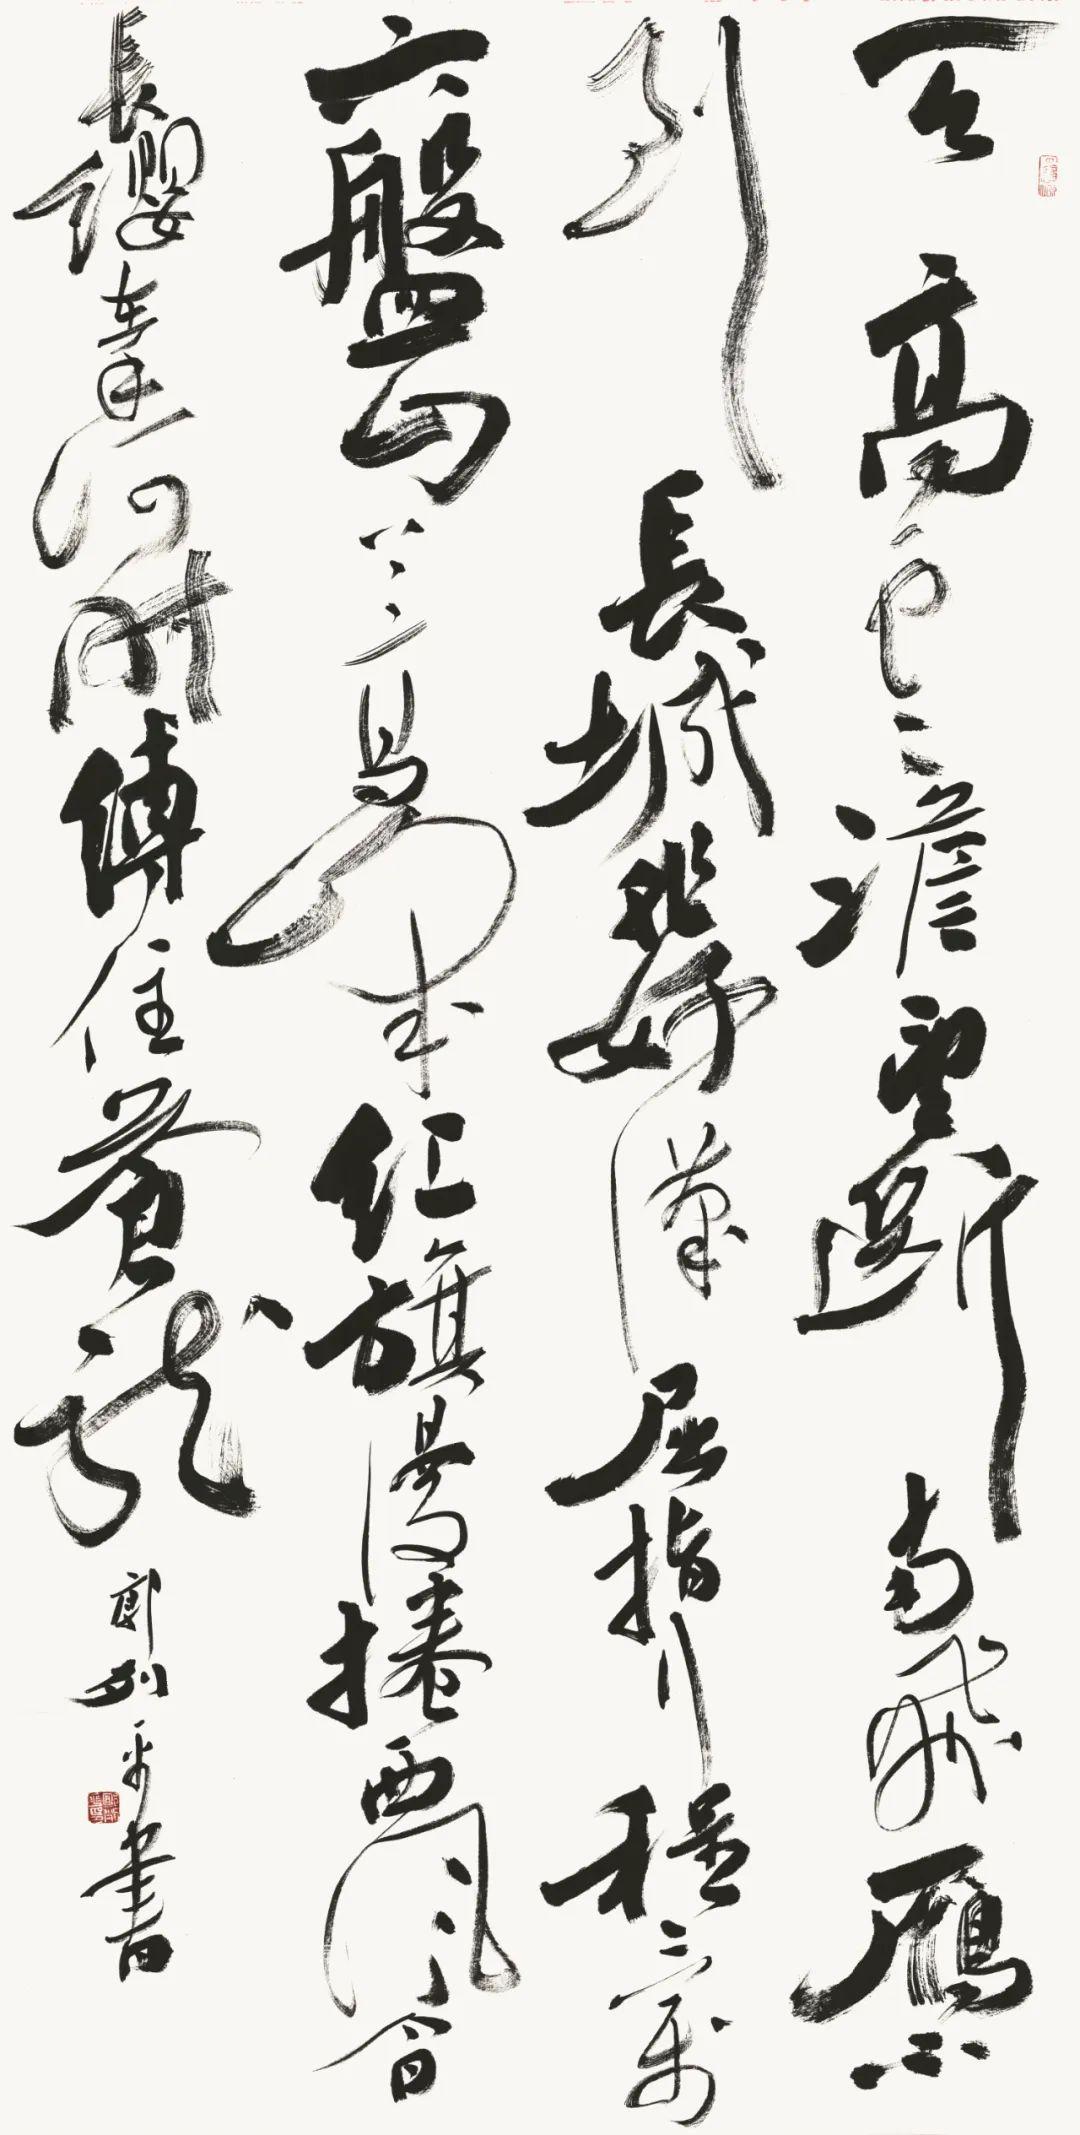 天高雲澹望斷南飛鴈不
到長城非好漢屈指行程二萬
六盤山上高峰紅旗漫捲西風今日
長纓在手何時縛住蒼龍 郭列平書